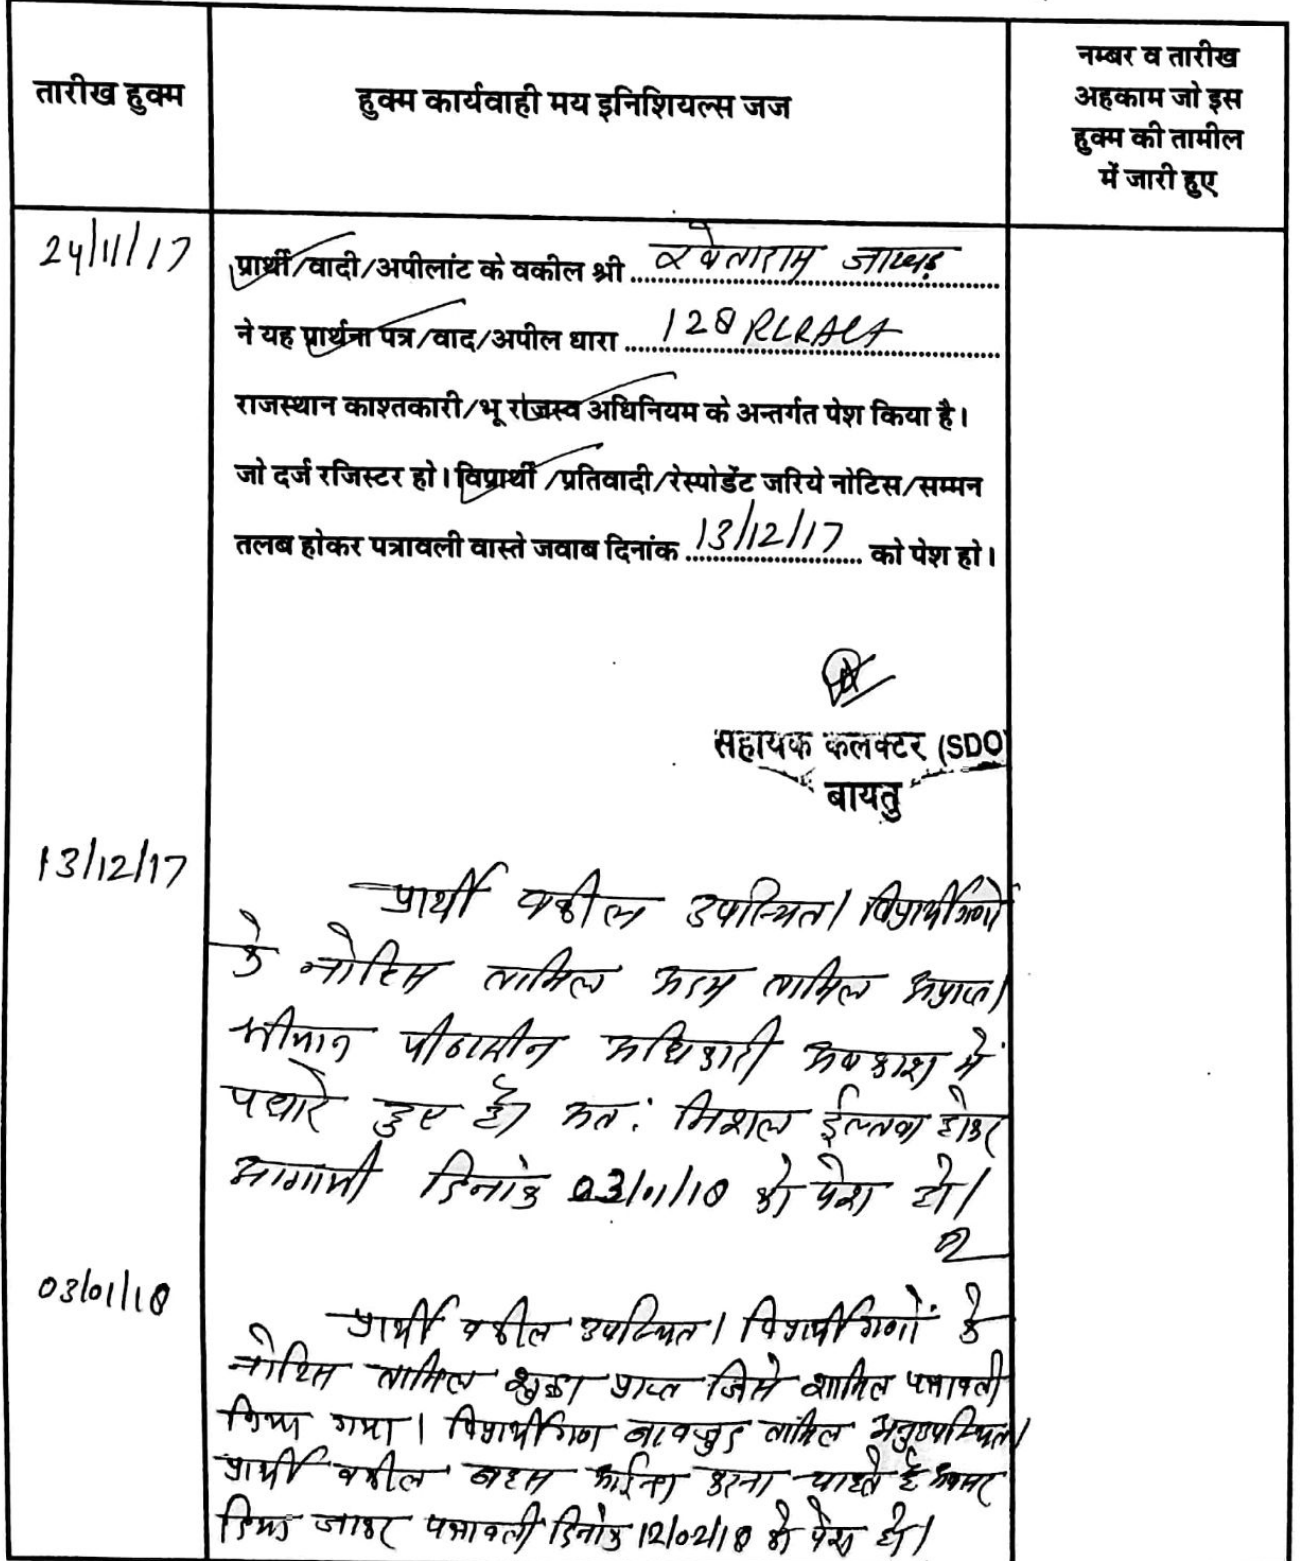 तारीख हुक्म
हुक्म कार्यवाही मय इनिशियल्स जज
नम्बर व तारीख
अहकाम जो इस
हुक्म की तामील
में जारी हुए
24/11/17
प्रार्थी/वादी/अपीलांट के वकील श्री
ने यह प्रार्थना पत्र/वाद/अपील धारा 128 RLRAct
राजस्थान काश्तकारी/भू राजस्व अधिनियम के अन्तर्गत पेश किया है।
जो दर्ज रजिस्टर हो। विप्रार्थी /प्रतिवादी/रेस्पोडेंट जरिये नोटिस/सम्मन
तलब होकर पत्रावली वास्ते जवाब दिनांक 13/12/17 को पेश हो।
सहायक कलक्टर (SDO)
बायतु
13/12/17
प्रार्थी वकील उपस्थित। विप्रार्थीगणों
के नोटिस तामिल अदम तामिल अप्राप्त।
श्रीमान पीठासीन अधिकारी अवकाश में
पधारे हुए है। अतः मिशल ईल्तवा होकर
आगामी दिनांक 03/01/18 को पेश हो।
03/01/18
प्रार्थी वकील उपस्थित। विप्रार्थीगणों के
नोटिस तामिल शुदा प्राप्त जिसे शामिल पत्रावली
किया गया। विप्रार्थीगण बावजुद तामिल अनुउपस्थित।
प्रार्थी वकील बहस करना चाहते है अवसर
दिया जाकर पत्रावली दिनांक 12/02/18 को पेश हो।